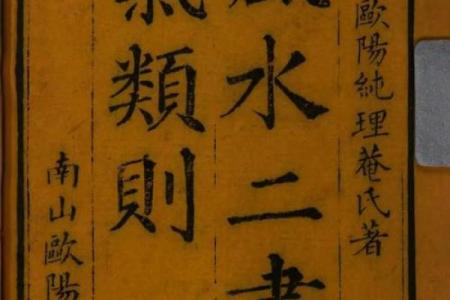 歐陽純理菴氏著
風水二書
氣類則
南山歐陽